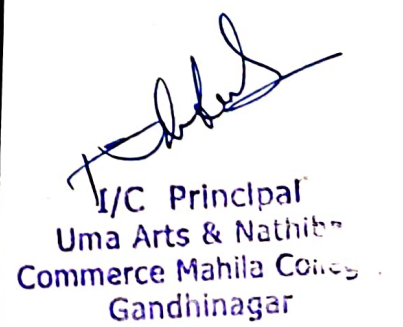 I/C Principal
Uma Arts & Nathiba
Commerce Mahila College
Gandhinagar